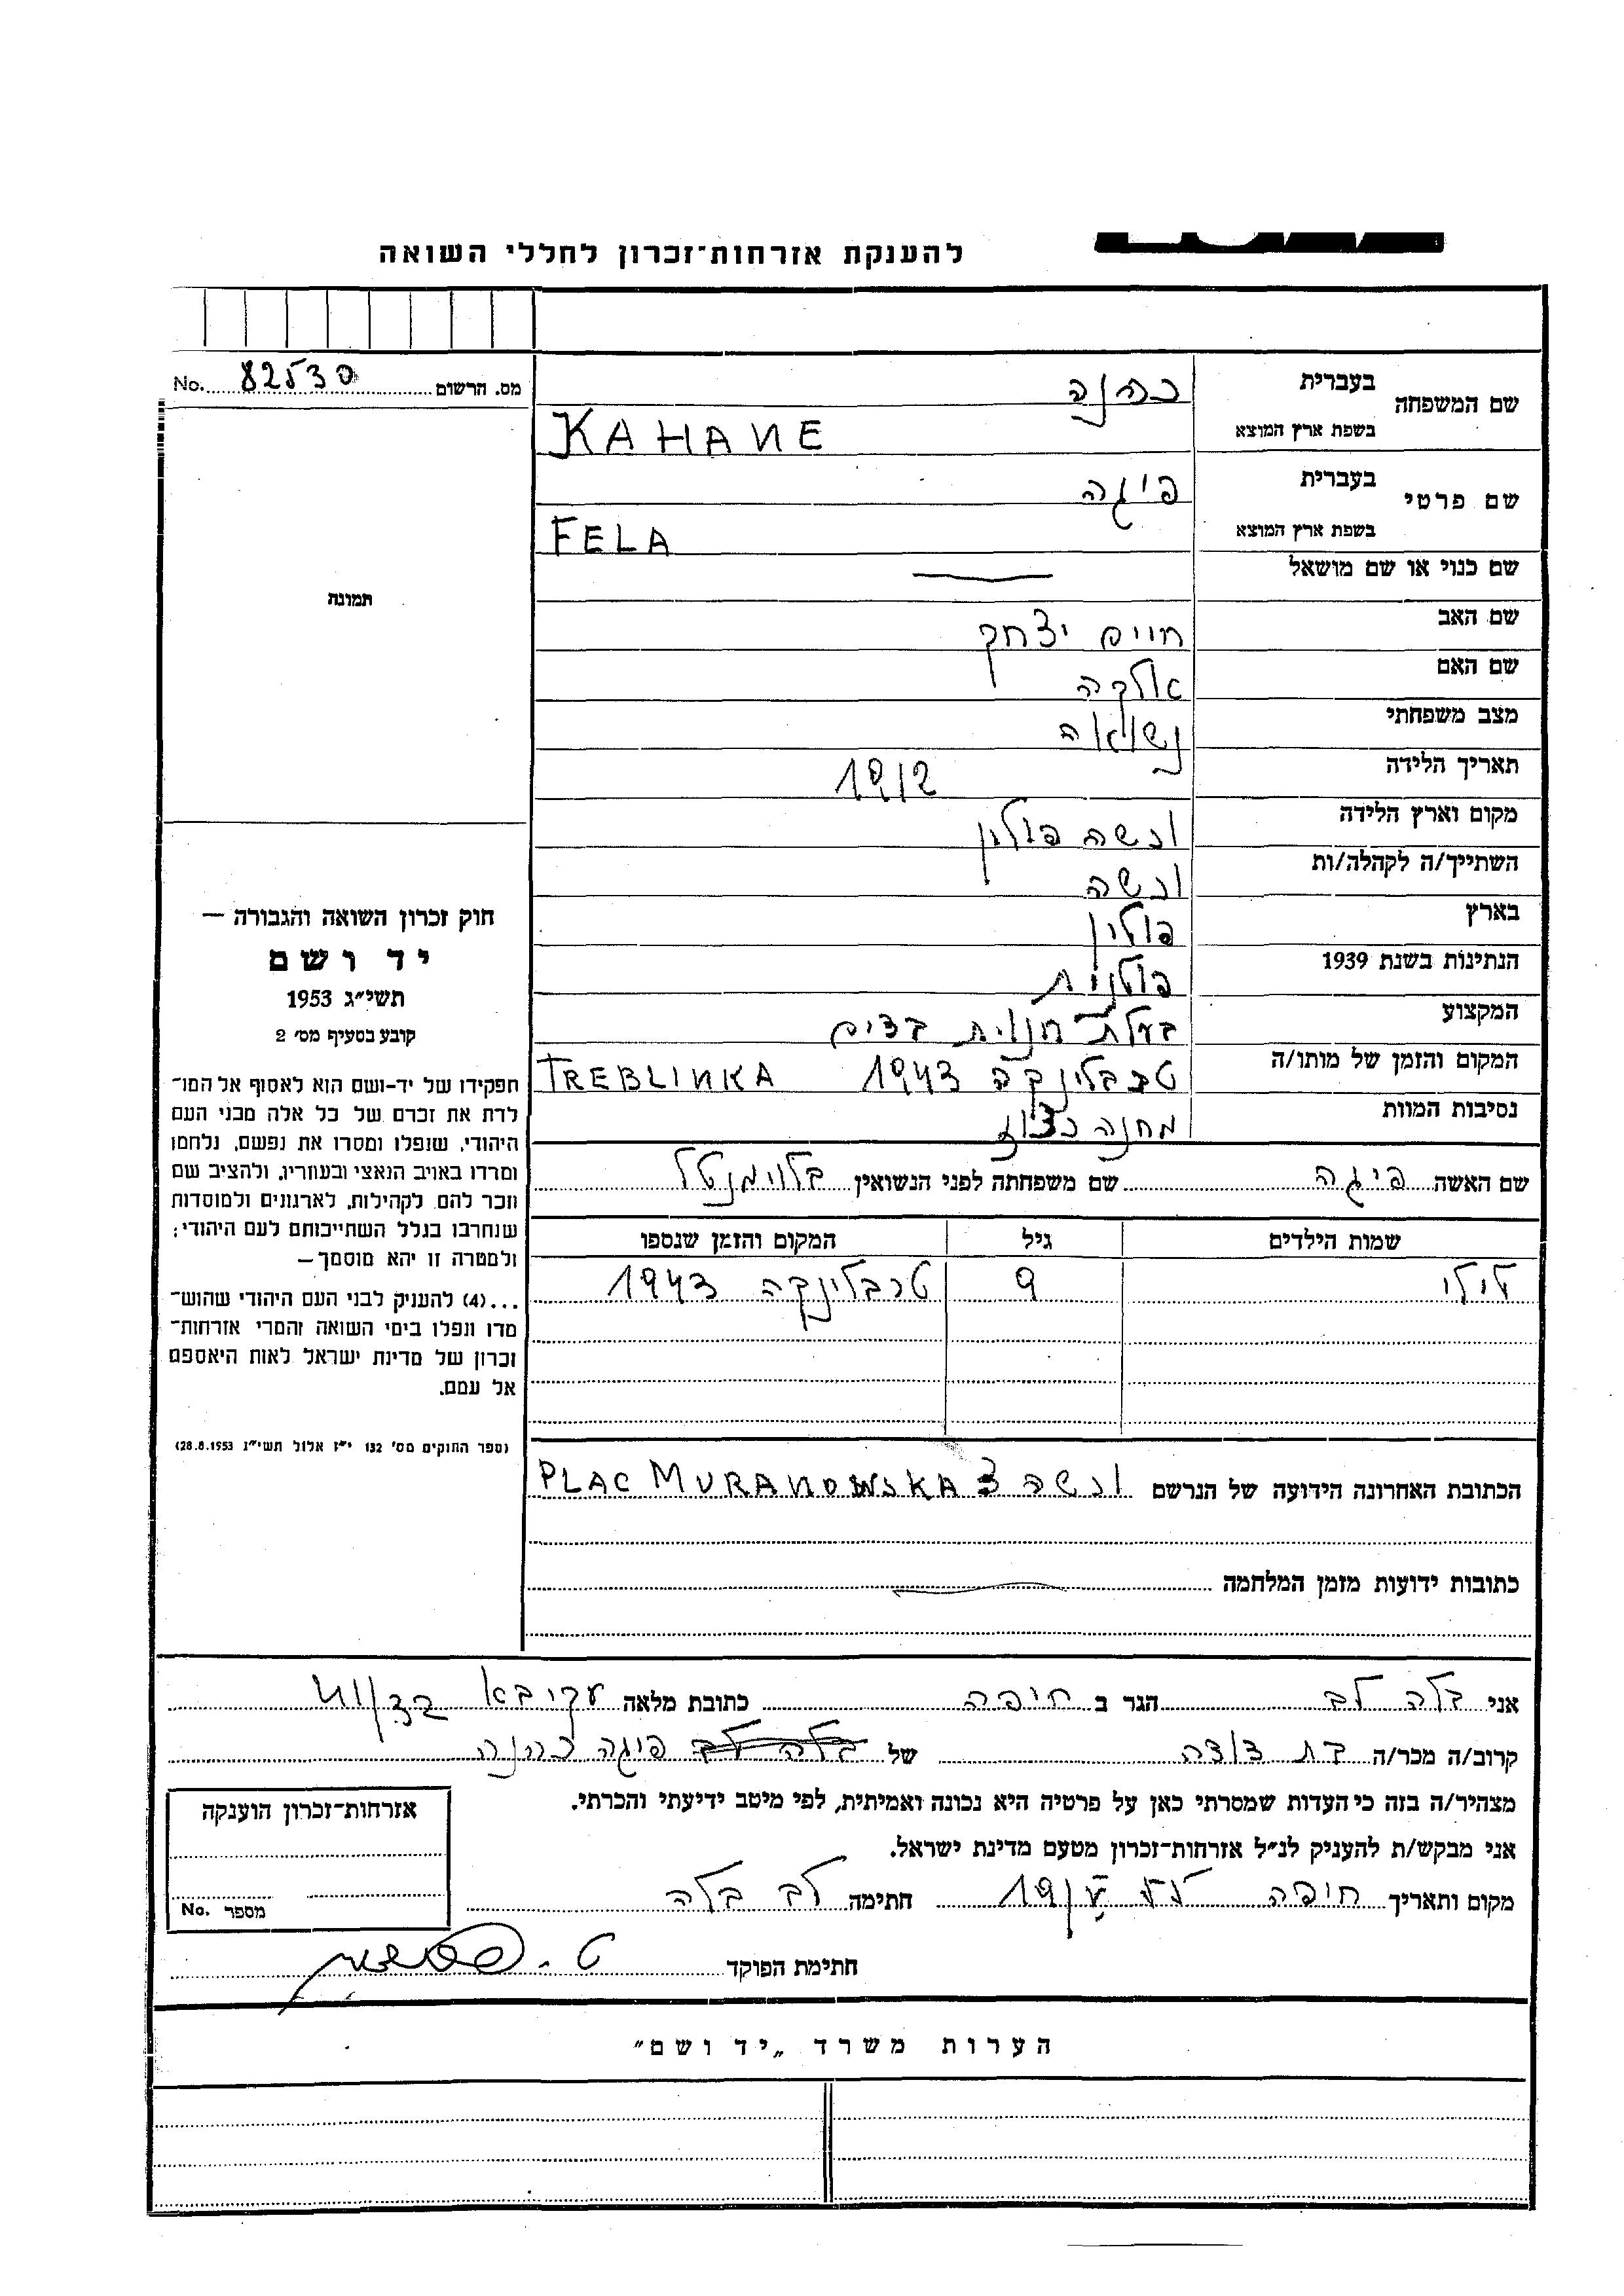 להענקת אזרחות־זכרון לחללי השואה
No. 82530 מס. הרשום
שם המשפחה
בעברית כהנה
בשפת ארץ המוצא KAHANE
שם פרטי
בעברית פיגה
בשפת ארץ המוצא FELA
שם כנוי או שם מושאל
שם האב חיים יצחק
שם האם אלקה
מצב משפחתי נשואה
תאריך הלידה 1912
מקום וארץ הלידה ורשה פולין
השתייך/ה לקהלה/ות ורשה
בארץ פולין
הנתינות בשנת 1939 פולנית
המקצוע בעלת חנות בדים
המקום והזמן של מותו/ה טרבלינקה 1943 TREBLINKA
נסיבות המוות מחנה רכוז
שם האשה פיגה שם משפחתה לפני הנשואין בלומנטל
שמות הילדים גיל המקום והזמן שנספו
לולו 9 טרבלינקה 1943
הכתובת האחרונה הידועה של הנרשם ורשה PLAC MURANOWSKA 3
כתובות ידועות מזמן המלחמה
תמונה
חוק זכרון השואה והגבורה —
יד ושם
תשי״ג 1953
קובע בסעיף מס׳ 2
תפקידו של יד־ושם הוא לאסוף אל המו־
לדת את זכרם של כל אלה מבני העם
היהודי, שנפלו ומסרו את נפשם, נלחמו
ומרדו באויב הנאצי ובעוזריו, ולהציב שם
וזכר להם לקהילות, לארגונים ולמוסדות
שנחרבו בגלל השתייכותם לעם היהודי;
ולמטרה זו יהא מוסמך—
...(4) להעניק לבני העם היהודי שהוש־
מדו ונפלו בימי השואה והמרי אזרחות־
זכרון של מדינת ישראל לאות היאספם
אל עמם.
(ספר החוקים מס׳ 132 י״ז אלול תשי״ג 28.8.1953)
אני בלה לב הגר ב חיפה כתובת מלאה עקיבא
קרוב/ה מכר/ה בת דודה של בלה לב פיגה כהנה
מצהיר/ה בזה כי העדות שמסרתי כאן על פרטיה היא נכונה ואמיתית, לפי מיטב ידיעתי והכרתי.
אני מבקש/ת להעניק לנ״ל אזרחות־זכרון מטעם מדינת ישראל.
מקום ותאריך חיפה חתימה לב בלה
חתימת הפוקד
אזרחות־זכרון הוענקה
No. מספר
הערות משרד „יד ושם״